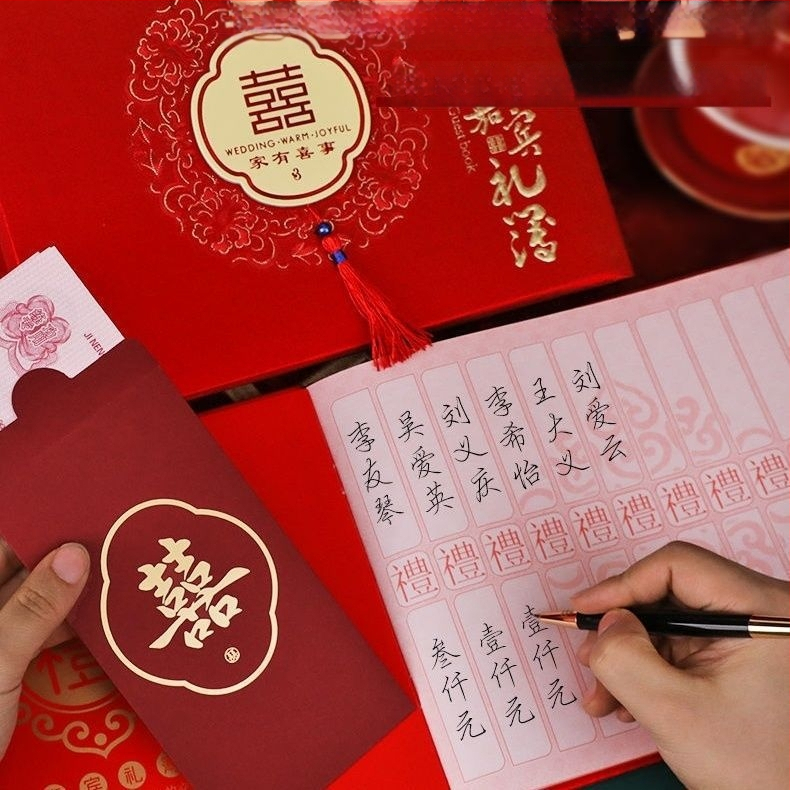 囍
WEDDING·WARM·JOYFUL
家有喜事
嘉宾礼簿
Guest book
JI NEN
囍
李友琴
吴爱英
刘义庆
李希怡
王大义
刘爱云
禮
禮
禮
禮
禮
禮
禮
禮
禮
叁仟元
壹仟元
壹仟元
宾礼